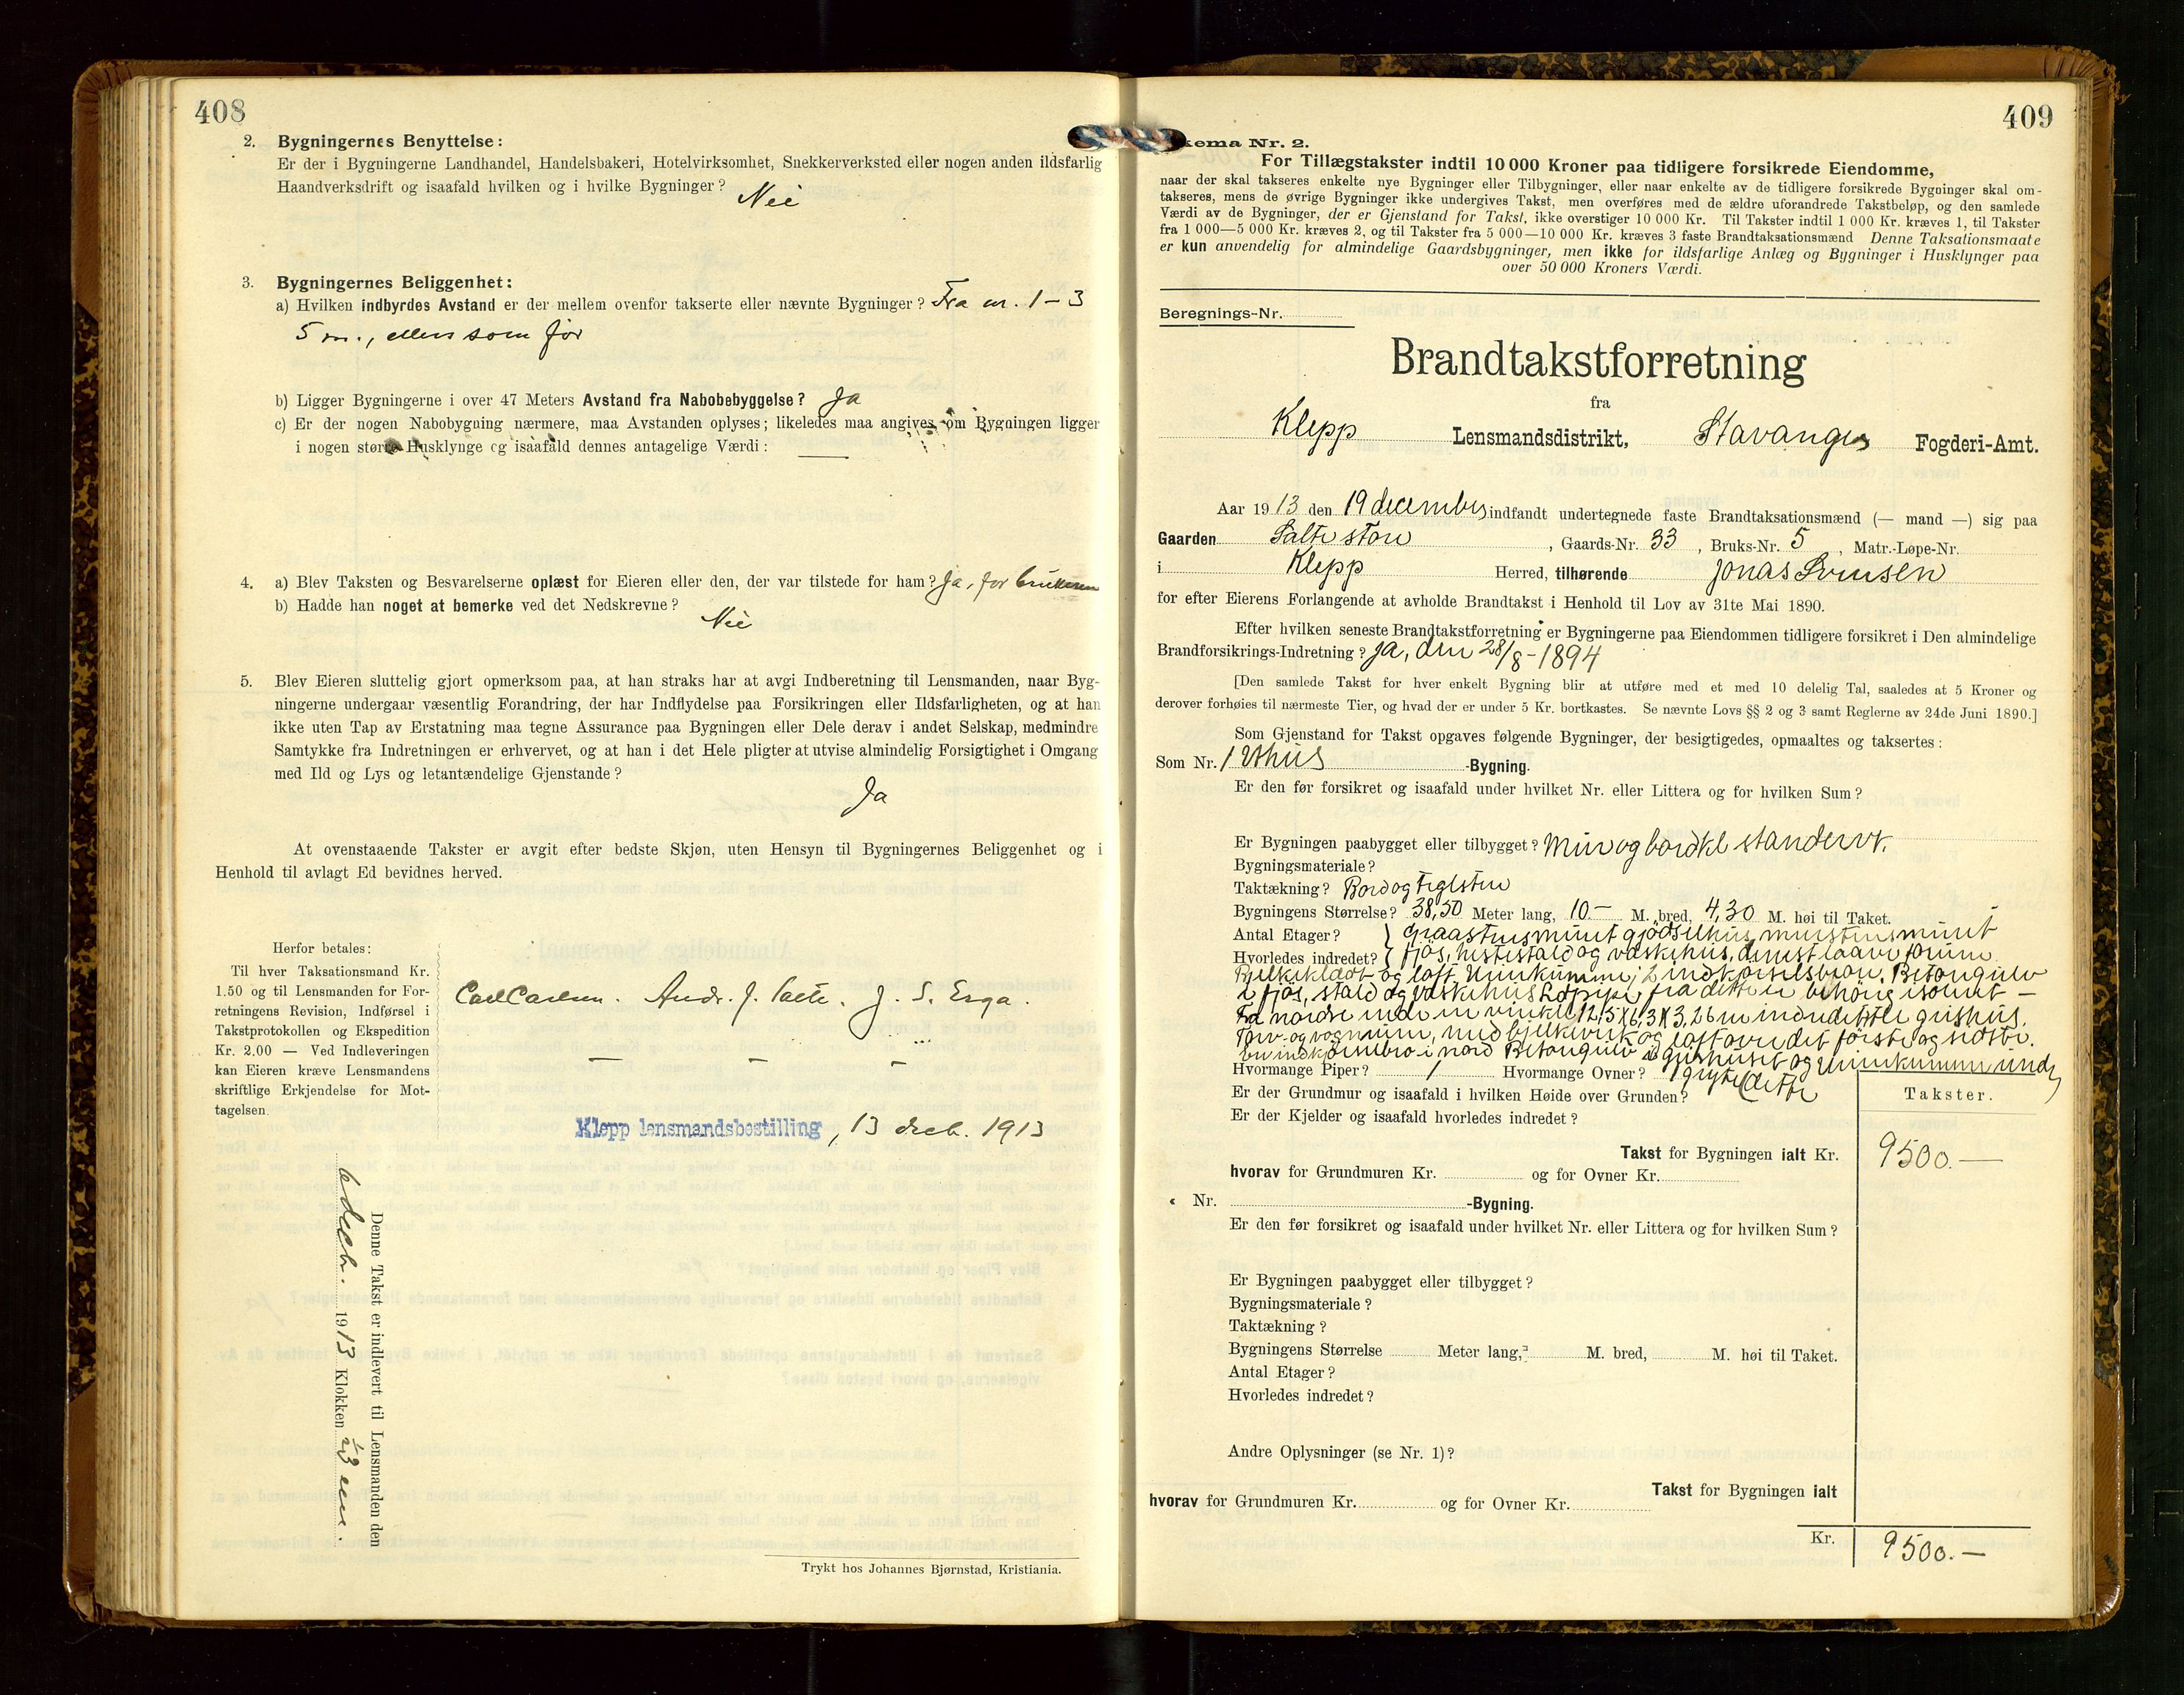 408
2. Bygningernes Benyttelse:
Er der i Bygningerne Landhandel, Handelsbakeri, Hotelvirksomhet, Snekkerverksted eller nogen anden ildsfarlig
Haandverksdrift og isaafald hvilken og i hvilke Bygninger? Nei
3. Bygningernes Beliggenhet:
a) Hvilken indbyrdes Avstand er der mellem ovenfor takserte eller nævnte Bygninger? Fra nr. 1-3
5 m., ellers som før
b) Ligger Bygningerne i over 47 Meters Avstand fra Nabobebyggelse? Ja
c) Er der nogen Nabobygning nærmere, maa Avstanden oplyses; likeledes maa angives, om Bygningen ligger
i nogen større Husklynge og isaafald dennes antagelige Værdi: —
4. a) Blev Taksten og Besvarelserne oplæst for Eieren eller den, der var tilstede for ham? Ja, for brukeren
b) Hadde han noget at bemerke ved det Nedskrevne?
Nei
5. Blev Eieren sluttelig gjort opmerksom paa, at han straks har at avgi Indberetning til Lensmanden, naar Byg-
ningerne undergaar væsentlig Forandring, der har Indflydelse paa Forsikringen eller Ildsfarligheten, og at han
ikke uten Tap av Erstatning maa tegne Assurance paa Bygningen eller Dele derav i andet Selskap, medmindre
Samtykke fra Indretningen er erhvervet, og at han i det Hele pligter at utvise almindelig Forsigtighet i Omgang
med Ild og Lys og letantændelige Gjenstande?
Ja
At ovenstaaende Takster er avgit efter bedste Skjøn, uten Hensyn til Bygningernes Beliggenhet og i
Henhold til avlagt Ed bevidnes herved.
Herfor betales:
Til hver Taksationsmand Kr.
1.50 og til Lensmanden for For-
retningens Revision, Indførsel i
Takstprotokollen og Ekspedition
Kr. 2.00 — Ved Indleveringen
kan Eieren kræve Lensmandens
skriftlige Erkjendelse for Mot-
tagelsen.
Carl Carlsen. Andr. J. Salte. J. S. Erga.
— — —
Klepp lensmandsbestilling, 13 decb. 1913
Denne Takst er indlevert til Lensmanden den
6 decb. 1913 Klokken
Trykt hos Johannes Bjørnstad, Kristiania.
409
kema Nr. 2.
For Tillægstakster indtil 10 000 Kroner paa tidligere forsikrede Eiendomme,
naar der skal takseres enkelte nye Bygninger eller Tilbygninger, eller naar enkelte av de tidligere forsikrede Bygninger skal om-
takseres, mens de øvrige Bygninger ikke undergives Takst, men overføres med de ældre uforandrede Takstbeløp, og den samlede
Værdi av de Bygninger, der er Gjenstand for Takst, ikke overstiger 10 000 Kr. Til Takster indtil 1 000 Kr. kræves 1, til Takster
fra 1 000—5 000 Kr. kræves 2, og til Takster fra 5 000—10 000 Kr. kræves 3 faste Brandtaksationsmænd Denne Taksationsmaate
er kun anvendelig for almindelige Gaardsbygninger, men ikke for ildsfarlige Anlæg og Bygninger i Husklynger paa
over 50 000 Kroners Værdi.
Beregnings-Nr.
Brandtakstforretning
fra
Klepp Lensmandsdistrikt, Stavanger Fogderi-Amt.
Aar 1913 den 19 december indfandt undertegnede faste Brandtaksationsmænd (— mand —) sig paa
Gaarden Salte store, Gaards-Nr. 33, Bruks-Nr. 5, Matr.-Løpe-Nr.
i Klepp Herred, tilhørende Jonas Svensen
for efter Eierens Forlangende at avholde Brandtakst i Henhold til Lov av 31te Mai 1890.
Efter hvilken seneste Brandtakstforretning er Bygningerne paa Eiendommen tidligere forsikret i Den almindelige
Brandforsikrings-Indretning? Ja, den 28/8-1894
[Den samlede Takst for hver enkelt Bygning blir at utføre med et med 10 delelig Tal, saaledes at 5 Kroner og
derover forhøies til nærmeste Tier, og hvad der er under 5 Kr. bortkastes. Se nævnte Lovs §§ 2 og 3 samt Reglerne av 24de Juni 1890.]
Som Gjenstand for Takst opgaves følgende Bygninger, der besigtigedes, opmaaltes og taksertes:
Som Nr. 1 Uthus -Bygning.
Er den før forsikret og isaafald under hvilket Nr. eller Littera og for hvilken Sum?
Er Bygningen paabygget eller tilbygget? Mur og bordkl standerv.
Bygningsmateriale?
Taktækning? Bord og teglsten
Bygningens Størrelse? 38,50 Meter lang, 10.- M. bred, 4,30 M. høi til Taket.
Antal Etager? Graastensmuret gjödselhus, murstensmuret
Hvorledes indredet? fjös, hestestald og vaskehus, dernest laave forrum.
Bjelkeklædt og loft. Urinkumme, 2 indkjörselsbroer. Betongulv
i fjös, stald og vaskehus
Fra nordre ende en vinkel 12,5 x 6,3 x 3,26 m indredet til grishus.
Torv- og vognrum, med bjelkeverk og loft over det første og sidste.
En indkjörsebro i nord Betongulv i grishuset og Urinkummen under
Hvormange Piper? 1 Hvormange Ovner? 1 gryte (dette
Er der Grundmur og isaafald i hvilken Høide over Grunden?
Er der Kjelder og isaafald hvorledes indredet?
Takster.
Takst for Bygningen ialt Kr. 9500.—
hvorav for Grundmuren Kr. og for Ovner Kr.
« Nr. -Bygning.
Er den før forsikret og isaafald under hvilket Nr. eller Littera og for hvilken Sum?
Er Bygningen paabygget eller tilbygget?
Bygningsmateriale?
Taktækning?
Bygningens Størrelse Meter lang, M. bred, M. høi til Taket.
Antal Etager?
Hvorledes indredet?
Andre Oplysninger (se Nr. 1)?
Takst for Bygningen ialt
hvorav for Grundmuren Kr. og for Ovner Kr.
Kr. 9500.—